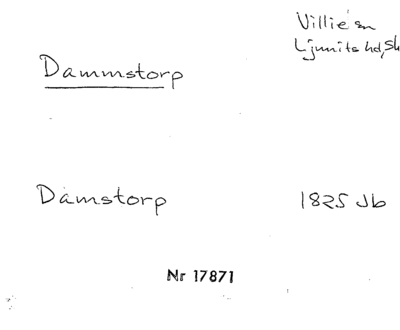 Villie sn
Ljunits hd, Sk
Dammstorp
Damstorp 1825 Jb
Nr 17871